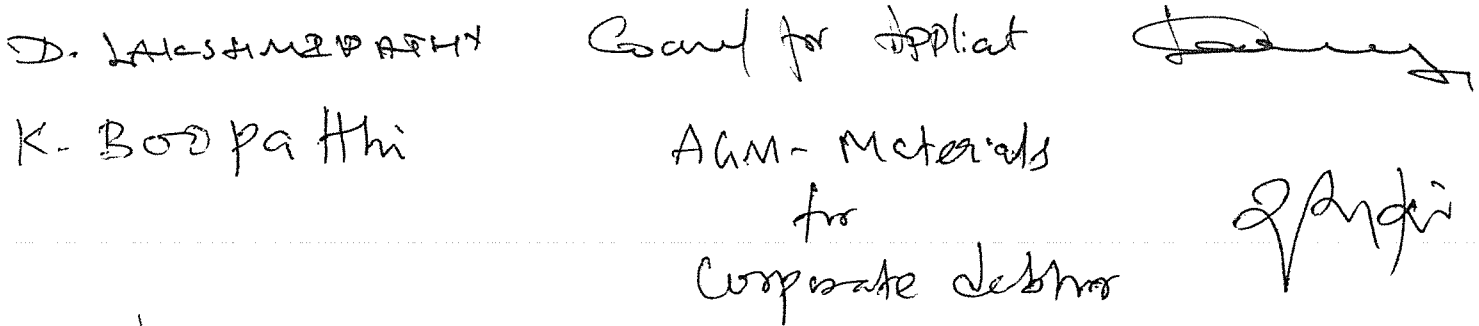 D. LAKSHMIPATHY Counsel for Applicant
K. Boopathi AGM - Materials
for
Corporate debtor